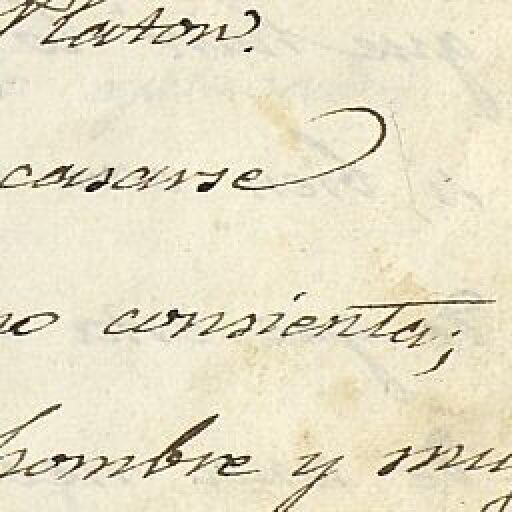 Platon.
casarse
no consienta;
hombre y muj